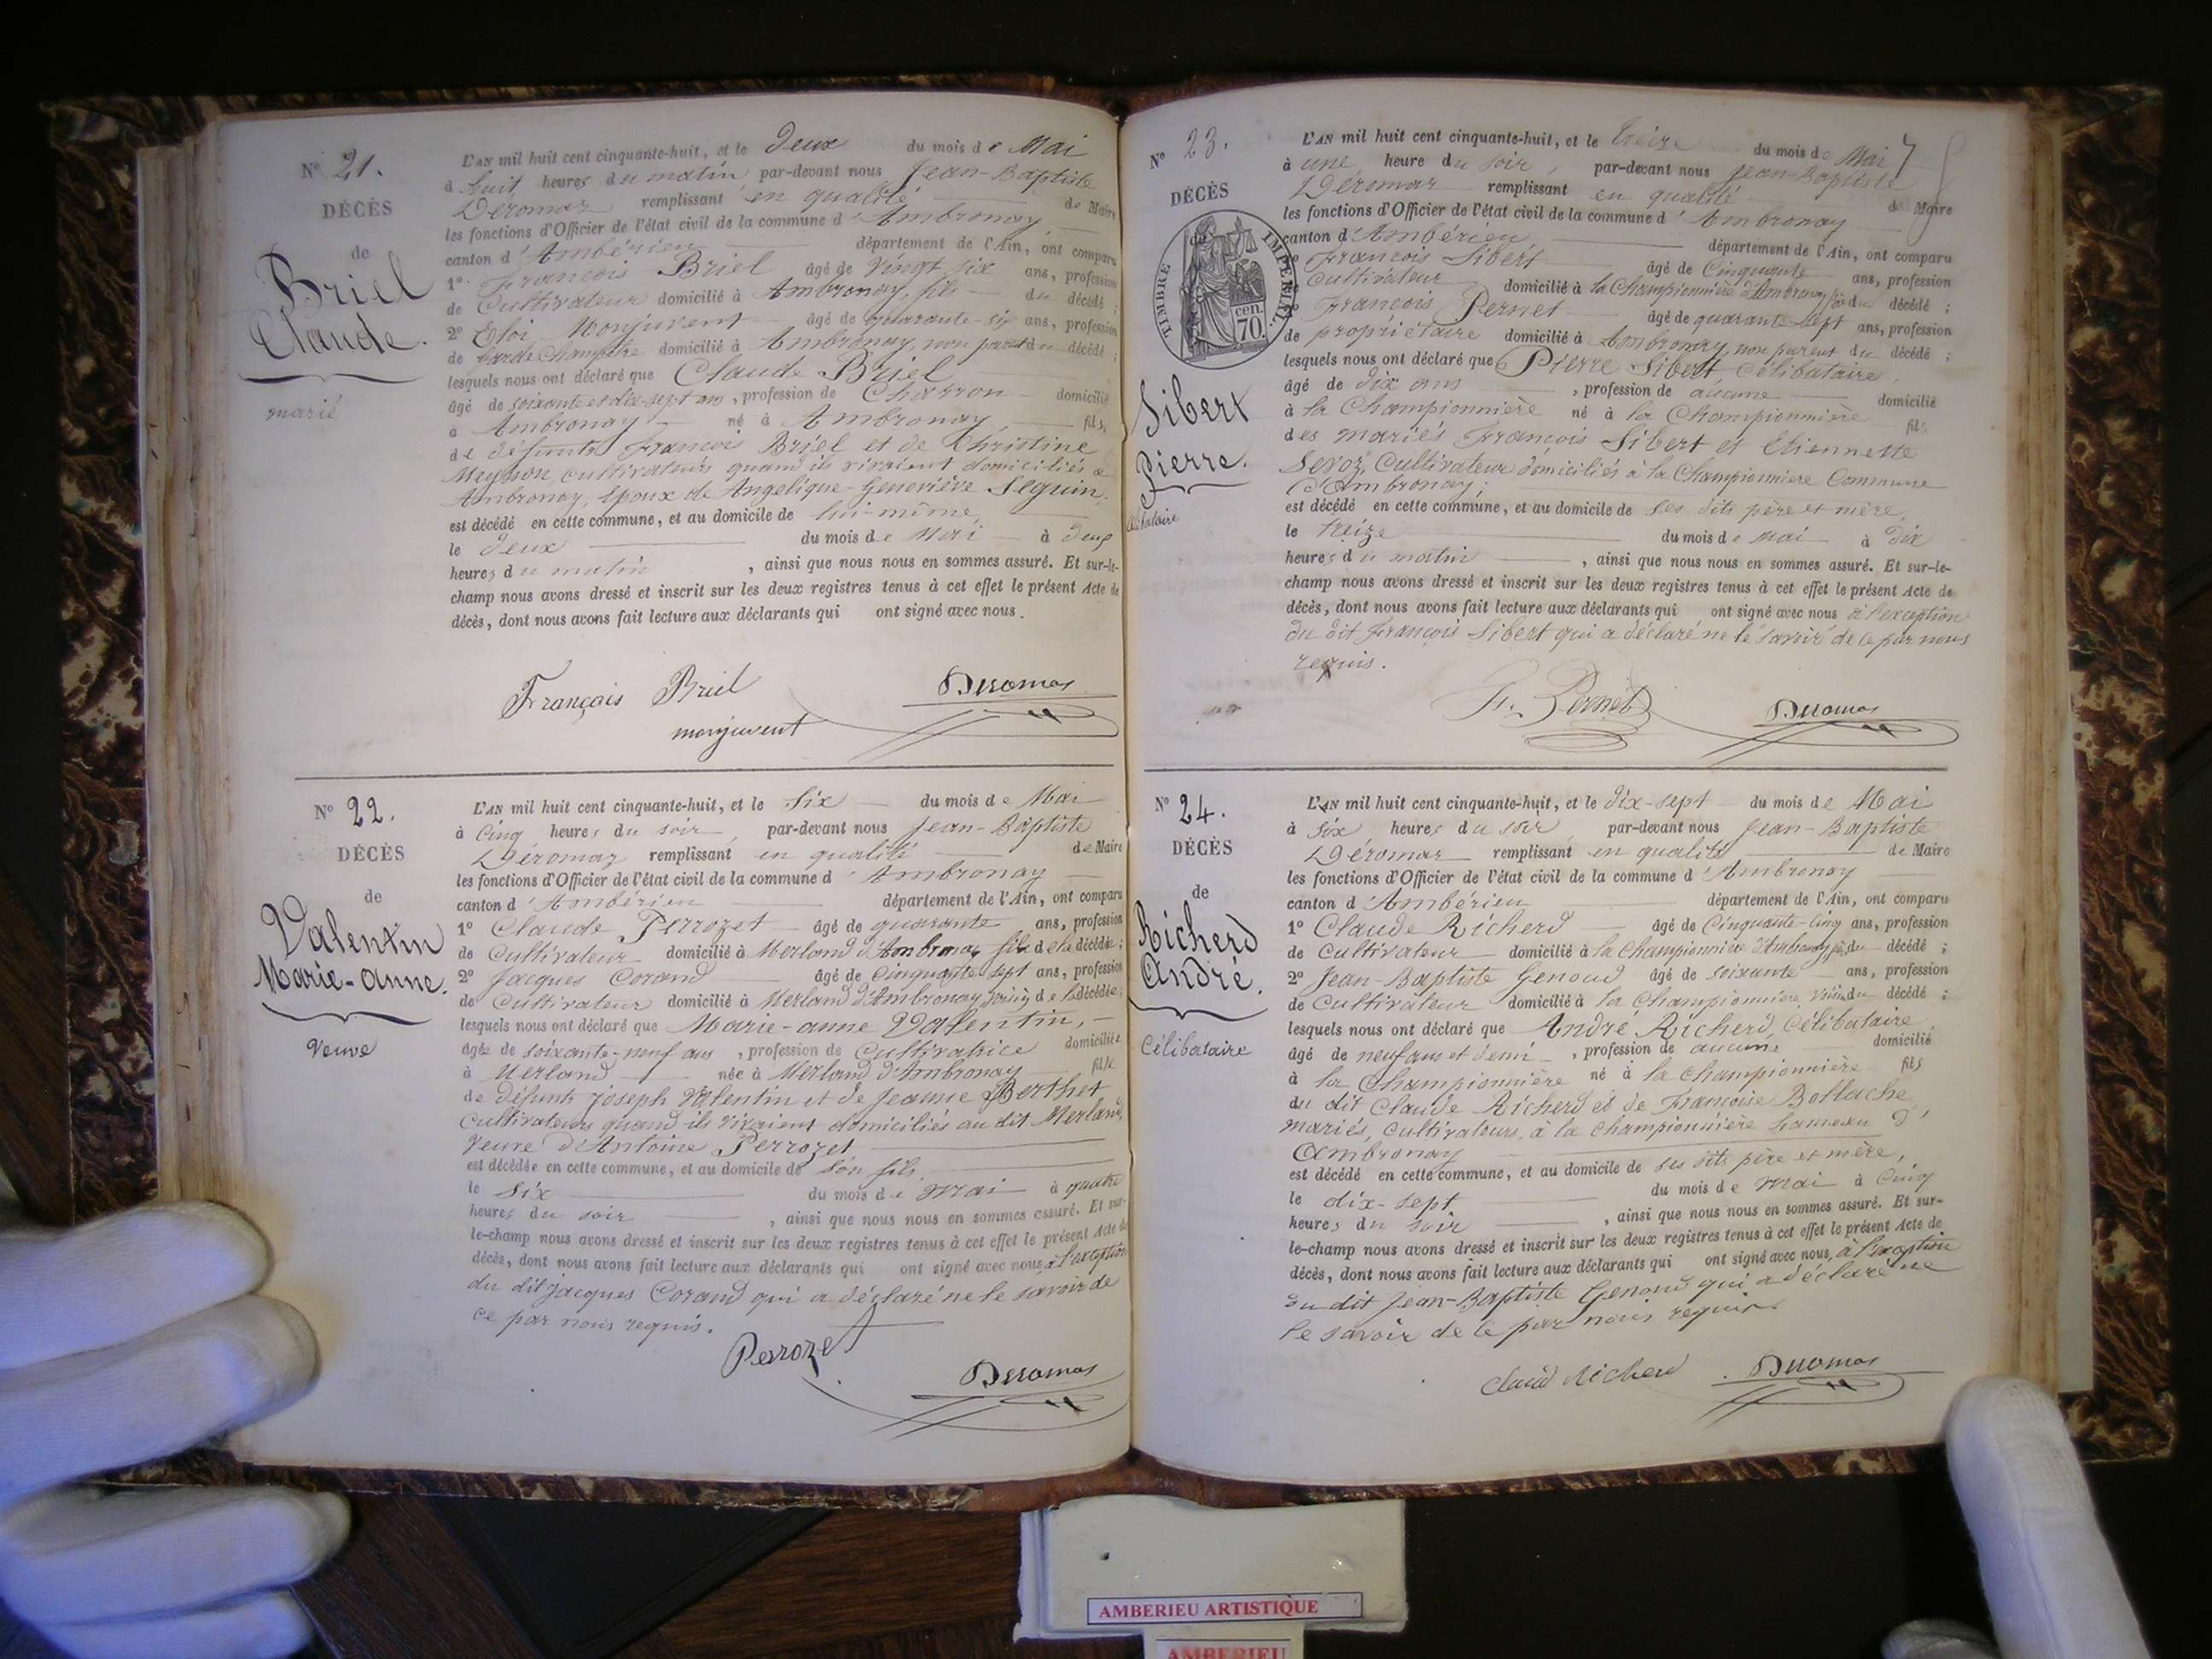 N° 21.
DÉCÈS
de
Briel
Claude.
marié
L'AN mil huit cent cinquante-huit, et le Deux du mois de Mai
à huit heures du matin par-devant nous Jean-Baptiste
Déromas remplissant en qualité de Maire
les fonctions d'Officier de l'état civil de la commune d'Ambronay
canton d'Ambérieu département de l'Ain, ont comparu
1° François Briel âgé de vingt six ans, profession
de Cultivateur domicilié à Ambronay, fils du décédé ;
2° Eloi Monjuvent âgé de quarante-six ans, profession
de Garde Champêtre domicilié à Ambronay, non parent du décédé ;
lesquels nous ont déclaré que Claude Briel
âgé de soixante et dix-sept ans, profession de Charron domicilié
à Ambronay né à Ambronay, fils
de défunts François Briel et de Christine
Meysson, cultivateurs quand ils vivaient domiciliés à
Ambronay, Epoux de Angelique-Geneviève Seguin,
est décédé en cette commune, et au domicile de lui-même
le deux du mois de Mai à deux
heures du matin, ainsi que nous nous en sommes assuré. Et sur-le-
champ nous avons dressé et inscrit sur les deux registres tenus à cet effet le présent Acte de
décès, dont nous avons fait lecture aux déclarants qui ont signé avec nous.
François Briel Deromas
monjuvent
N° 22.
DÉCÈS
de
Valentin
Marie-anne.
Veuve
L'AN mil huit cent cinquante-huit, et le Six du mois de Mai
à Cinq heures du soir, par-devant nous Jean-Baptiste
Déromas remplissant en qualité de Maire
les fonctions d'Officier de l'état civil de la commune d'Ambronay
canton d'Ambérieu département de l'Ain, ont comparu
1° Claude Perrozet âgé de quarante ans, profession
de Cultivateur domicilié à Merland d'Ambronay fils de la décédée ;
2° Jacques Corand âgé de Cinquante sept ans, profession
de Cultivateur domicilié à Merland d'Ambronay voisin de la décédée ;
lesquels nous ont déclaré que Marie-anne Valentin,
âgée de soixante-neuf ans, profession de Cultivatrice domiciliée
à Merland née à Merland d'Ambronay fille
de défunts Joseph Valentin et de Jeanne Berthet
Cultivateurs quand ils vivaient domiciliés au dit Merland,
Veuve d'Antoine Perrozet
est décédée en cette commune, et au domicile de son fils
le Six du mois de mai à quatre
heures du soir, ainsi que nous nous en sommes assuré. Et sur-
le-champ nous avons dressé et inscrit sur les deux registres tenus à cet effet le présent Acte de
décès, dont nous avons fait lecture aux déclarants qui ont signé avec nous à l'exception
du dit Jacques Corand qui a déclaré ne le savoir de
ce par nous requis.
Perrozet
Deromas
N° 23.
DÉCÈS
de
TIMBRE IMPERIAL.
70. cen.
Sibert
Pierre.
Célibataire
L'AN mil huit cent cinquante-huit, et le treize du mois de Mai
à une heure du soir, par-devant nous Jean-Baptiste
Déromas remplissant en qualité de Maire
les fonctions d'Officier de l'état civil de la commune d'Ambronay
canton d'Ambérieu département de l'Ain, ont comparu
1° François Sibert âgé de Cinquante ans, profession
Cultivateur domicilié à la Championnière d'Ambronay père du décédé ;
2° François Pernet âgé de quarante sept ans, profession
de propriétaire domicilié à Ambronay, non parent du décédé ;
lesquels nous ont déclaré que Pierre Sibert Célibataire,
âgé de dix ans, profession de aucune domicilié
à la Championnière né à la Championnière fils
des mariés François Sibert et Etiennette
Servoz, Cultivateurs domiciliés à la Championnière Commune
d'Ambronay ;
est décédé en cette commune, et au domicile de ses dits père et mère,
le treize du mois de mai à dix
heures du matin, ainsi que nous nous en sommes assuré. Et sur-le-
champ nous avons dressé et inscrit sur les deux registres tenus à cet effet le présent Acte de
décès, dont nous avons fait lecture aux déclarants qui ont signé avec nous à l'exception
du dit François Sibert qui a déclaré ne le savoir de ce par nous
requis.
F. Pernet Deromas
N° 24.
DÉCÈS
de
Richerd
André.
Célibataire
L'AN mil huit cent cinquante-huit, et le dix-sept du mois de Mai
à six heures du soir par-devant nous Jean-Baptiste
Déromas remplissant en qualité de Maire
les fonctions d'Officier de l'état civil de la commune d'Ambronay
canton d'Ambérieu département de l'Ain, ont comparu
1° Claude Richerd âgé de Cinquante-cinq ans, profession
de Cultivateur domicilié à la Championnière d'Ambronay père du décédé ;
2° Jean-Baptiste Genoud âgé de soixante ans, profession
de Cultivateur domicilié à la Championnière, voisin du décédé ;
lesquels nous ont déclaré que André Richerd, Célibataire,
âgé de neuf ans et demi, profession de aucune domicilié
à la Championnière né à la Championnière fils
du dit Claude Richerd et de Françoise Bollache
mariés, Cultivateurs, à la Championnière hameau d'
Ambronay
est décédé en cette commune, et au domicile de ses dits père et mère,
le dix-sept du mois de mai à Cinq
heures du soir, ainsi que nous nous en sommes assuré. Et sur-
le-champ nous avons dressé et inscrit sur les deux registres tenus à cet effet le présent Acte de
décès, dont nous avons fait lecture aux déclarants qui ont signé avec nous, à l'exception
du dit Jean-Baptiste Genoud qui a déclaré ne
le savoir de ce par nous requis.
Claud Richerd Deromas
AMBERIEU ARTISTIQUE
AMBERIEU